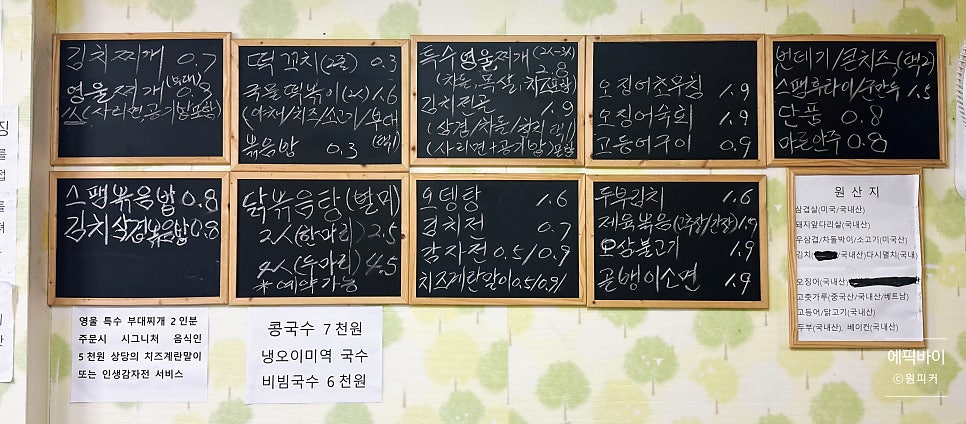 김치찌개 0.7
영울찌개 (부대) 0.8
(사리면,공기밥포함)
떡꼬치(2줄) 0.3
국물떡볶이(2人) 1.6
(야채/치즈/소고기/부대
볶음밥 0.3 (택1)
특수영울찌개 (2人~3人)
(차돌,목살,치즈포함) 2.8
김치전골 1.9
(삼겹/차돌/참치 택1)
(사리면+공기밥)포함
오징어초무침 1.9
오징어숙회 1.9
고등어구이 0.9
번데기/콘치즈(택2)
스팸후라이/군만두 1.5
단품 0.8
마른안주 0.8
스팸볶음밥 0.8
김치삼겹볶음밥 0.8
닭볶음탕(별미)
2人(한마리) 2.5
4人(두마리) 4.5
* 예약가능
오뎅탕 1.6
김치전 0.7
감자전 0.5/0.9
치즈계란말이 0.5/0.9/
두부김치 1.6
제육볶음(고추장/간장)1.9
오삼불고기 1.9
골뱅이소면 1.9
원산지
삼겹살(미국/국내산)
돼지앞다리살(국내산)
우삼겹/차돌박이/소고기(미국산)
김치( /국내산)다시멸치(국내)
오징어(국내산)
고춧가루(중국산/국내산/베트남)
고등어/닭고기(국내산)
두부(국내산), 베이컨(국내산)
영울 특수 부대찌개 2인분
주문시 시그니처 음식인
5천원 상당의 치즈계란말이
또는 인생감자전 서비스
콩국수 7천원
냉오이미역 국수
비빔국수 6천원
에픽바이
ⓒ원피커